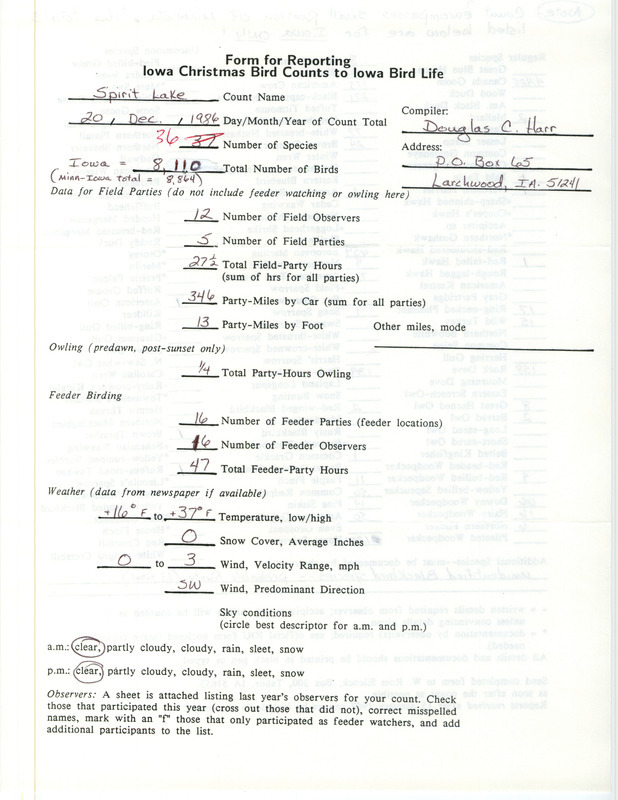 Form for Reporting
Iowa Christmas Bird Counts to Iowa Bird Life
Spirit Lake Count Name
20, Dec., 1986 Day/Month/Year of Count Total
Compiler:
Douglas C. Harr
36 37 Number of Species
Address:
P.O. Box 65
Larchwood, IA. 51241
Iowa = 8,110 Total Number of Birds
(Minn-Iowa total = 8,864)
Data for Field Parties (do not include feeder watching or owling here)
12 Number of Field Observers
5 Number of Field Parties
27 1/2 Total Field-Party Hours
(sum of hrs for all parties)
346 Party-Miles by Car (sum for all parties)
13 Party-Miles by Foot Other miles, mode
Owling (predawn, post-sunset only)
1/4 Total Party-Hours Owling
Feeder Birding
16 Number of Feeder Parties (feeder locations)
16 Number of Feeder Observers
47 Total Feeder-Party Hours
Weather (data from newspaper if available)
+16° F to +37° F Temperature, low/high
0 Snow Cover, Average Inches
0 to 3 Wind, Velocity Range, mph
SW Wind, Predominant Direction
Sky conditions
(circle best descriptor for a.m. and p.m.)
a.m.: clear, partly cloudy, cloudy, rain, sleet, snow
p.m.: clear, partly cloudy, cloudy, rain, sleet, snow
Observers: A sheet is attached listing last year's observers for your count. Check
those that participated this year (cross out those that did not), correct misspelled
names, mark with an "f" those that only participated as feeder watchers, and add
additional participants to the list.